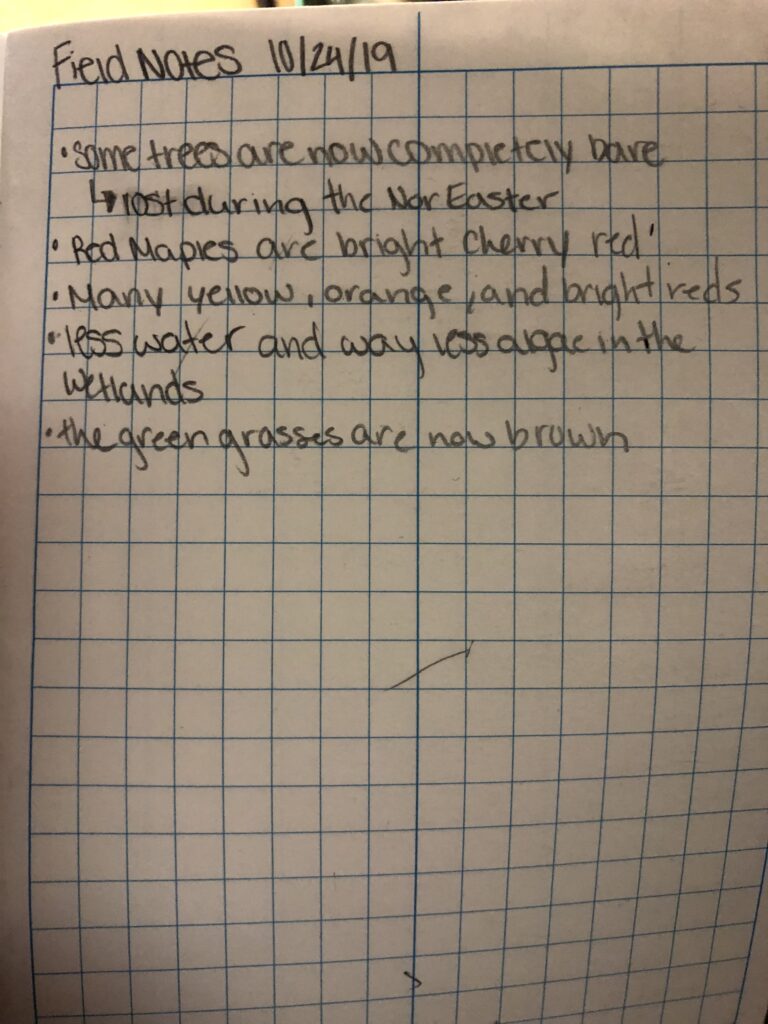 Field Notes 10/24/19
• some trees are now completely bare
↳ lost during the Nor Easter
• Red Maples are bright cherry red
• Many yellow, orange, and bright reds
• less water and way less algae in the
wetlands
• the green grasses are now brown